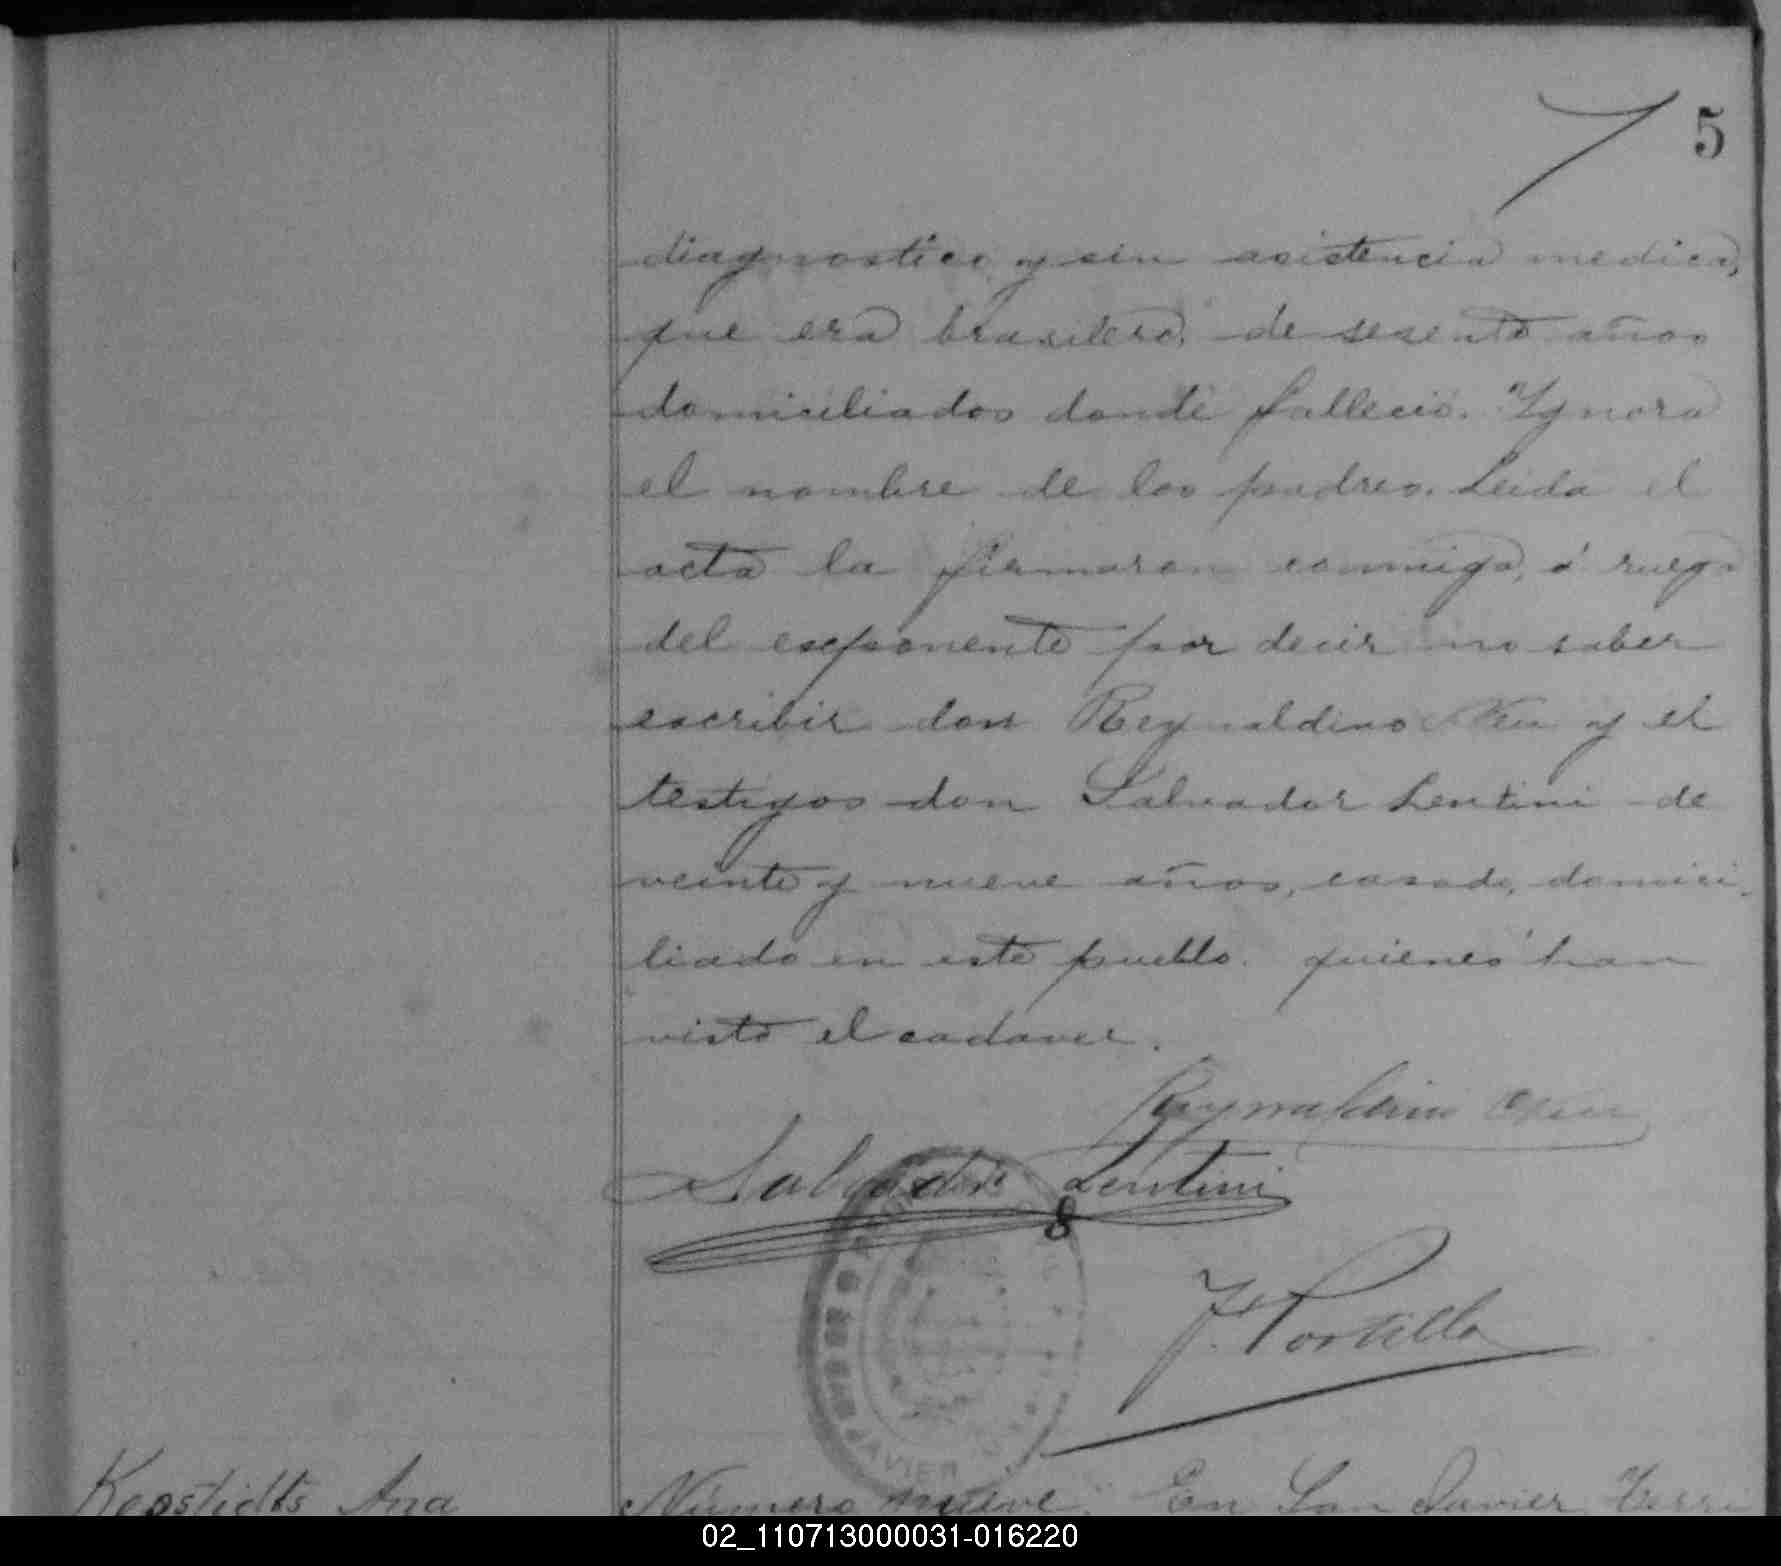 5
diagnostico y sin asistencia medica,
que era brasilero, de sesenta años
domiciliados donde falleció. Ygnora
el nombre de los padres. Leida el
acta la firmaron conmigo, á ruego
del exponente por decir no saber
escribir don Reynaldino y el
testigos don Salvador Lentini de
veinte y nueve años, casado, domici-
liado en este pueblo. quienes han
visto el cadaver.
Reynaldino
Salvador Lentini
8
J. Portillo
JAVIER
Ana
Número nueve. En San Javier, Terri
02_110713000031-016220